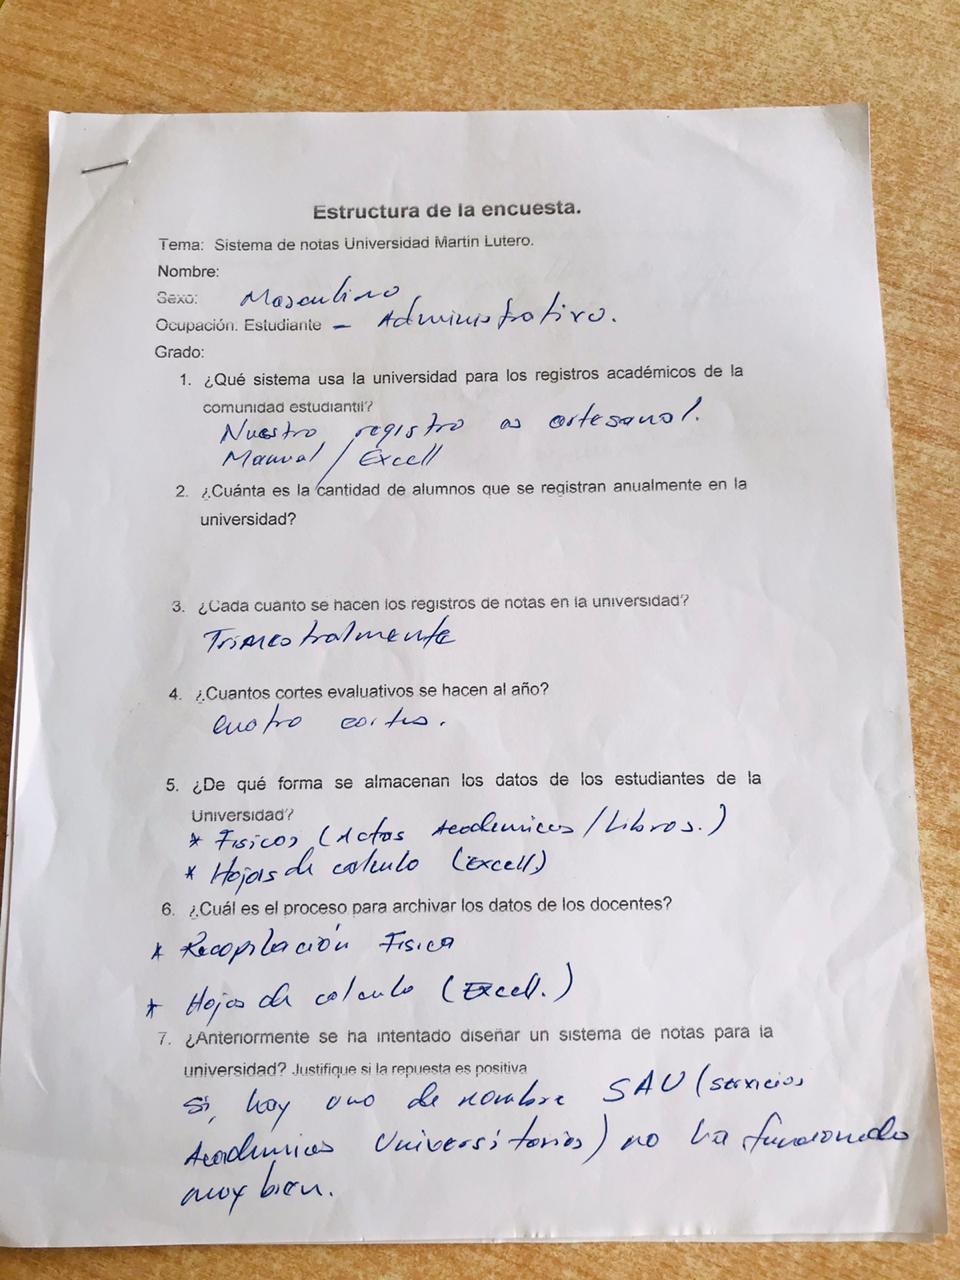 Estructura de la encuesta.
Tema: Sistema de notas Universidad Martin Lutero.
Nombre:
Sexo: Masculino
Ocupación. Estudiante – Administrativo.
Grado:
1. ¿Qué sistema usa la universidad para los registros académicos de la
comunidad estudiantil?
Nuestro registro es artesanal.
Manual / Excell
2. ¿Cuánta es la cantidad de alumnos que se registran anualmente en la
universidad?
3. ¿Cada cuanto se hacen los registros de notas en la universidad?
Trimestralmente
4. ¿Cuantos cortes evaluativos se hacen al año?
cuatro cortes.
5. ¿De qué forma se almacenan los datos de los estudiantes de la
Universidad?
* Fisicos (Actas Academicas / Libros.)
* Hojas de calculo (Excell)
6. ¿Cuál es el proceso para archivar los datos de los docentes?
* Recopilación Fisica
* Hojas de calculo (Excell.)
7. ¿Anteriormente se ha intentado diseñar un sistema de notas para la
universidad? Justifique si la repuesta es positiva
Si, hay uno de nombre SAU (servicios
Academicos Universitarios) no ha funcionado
muy bien.